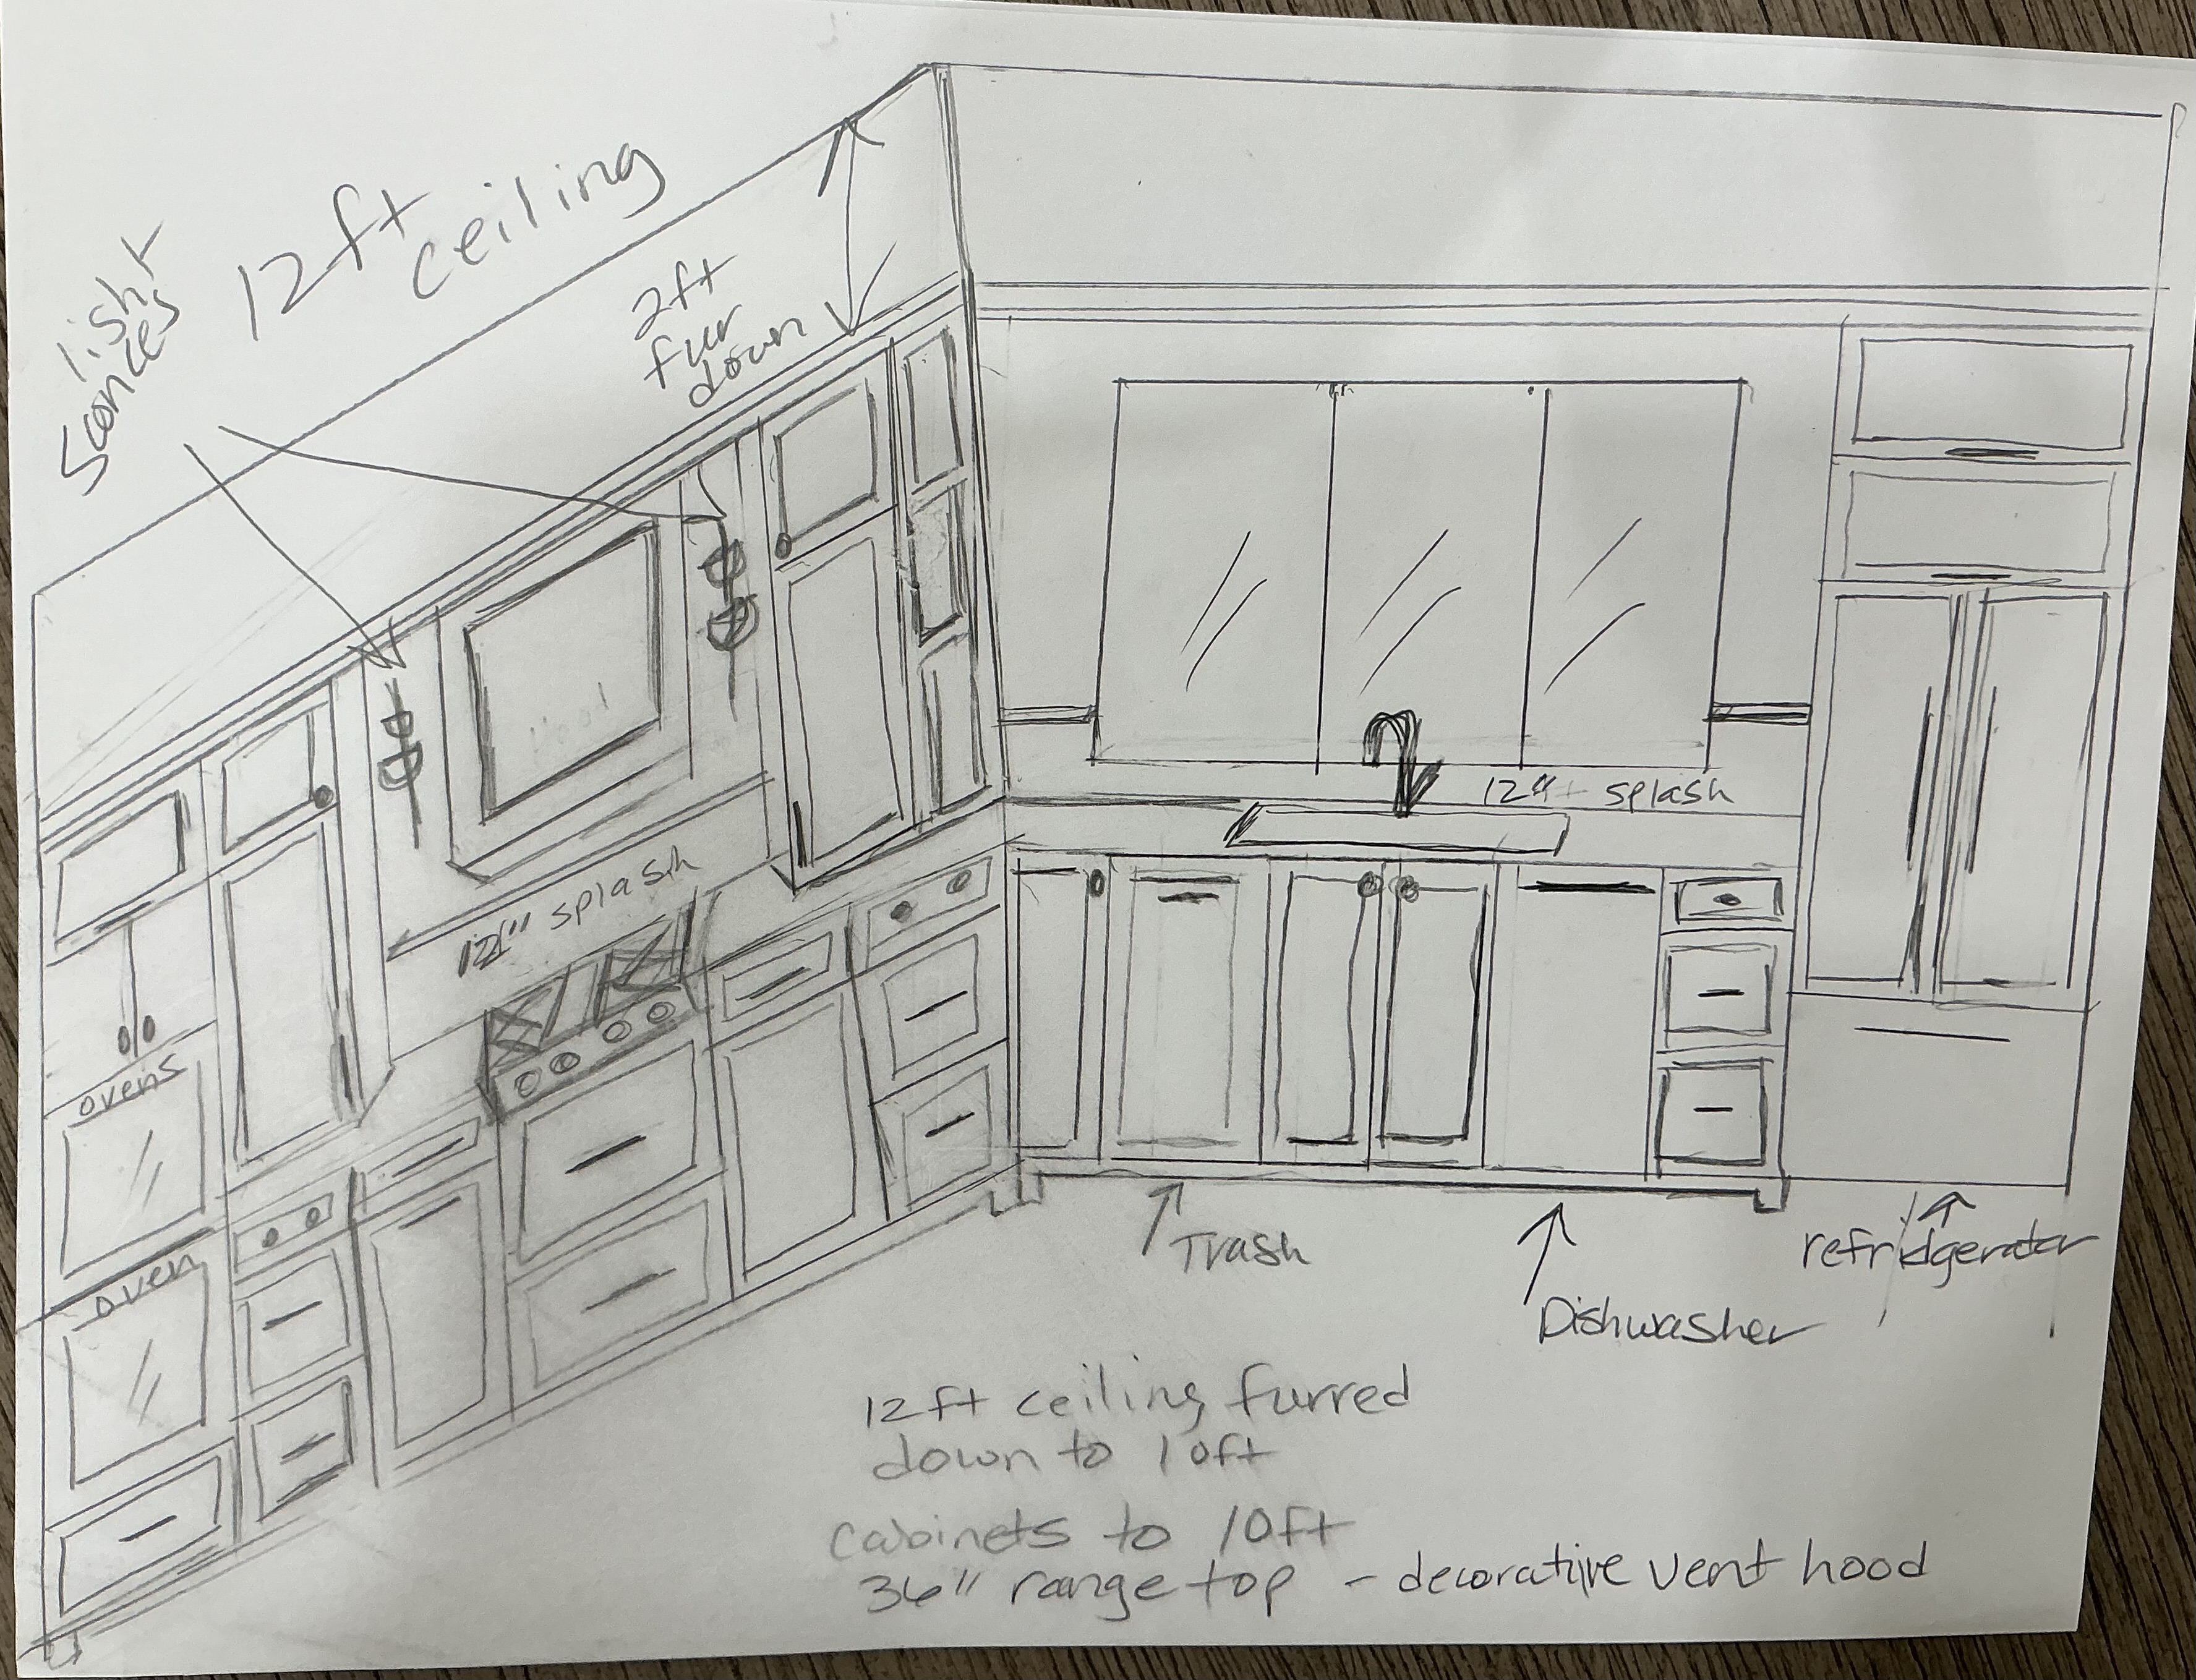 light
sconces
12ft
ceiling
2ft
fur
down
12" splash
12" splash
ovens
oven
Trash
Dishwasher
refridgerator
12ft ceiling furred
down to 10ft
cabinets to 10ft
36" range top - decorative vent hood